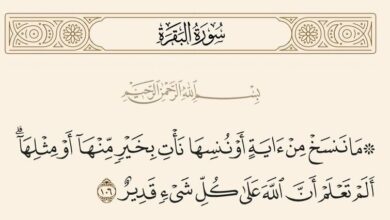 سُورَةُ البَقَرَةِ
بِسْمِ اللَّهِ الرَّحْمَٰنِ الرَّحِيمِ
۞ مَا نَنسَخْ مِنْ ءَايَةٍ أَوْ نُنسِهَا نَأْتِ بِخَيْرٍ مِّنْهَآ أَوْ مِثْلِهَآۗ
أَلَمْ تَعْلَمْ أَنَّ اللَّهَ عَلَىٰ كُلِّ شَىْءٍ قَدِيرٌ ١٠٦